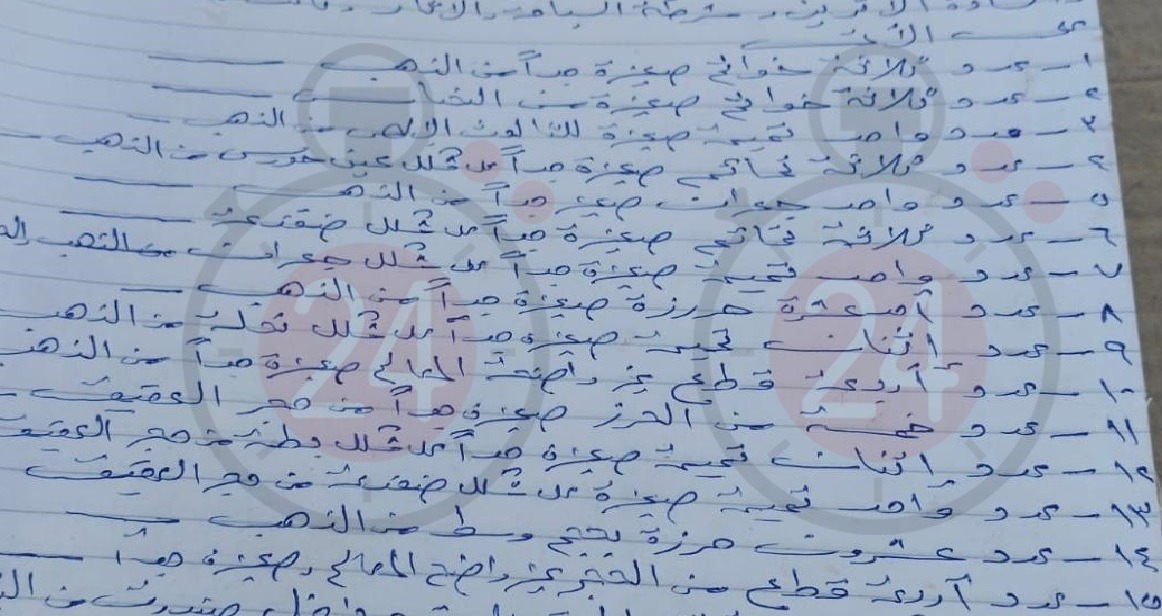 السياحة والآثار
الآتى
١ - عدد ثلاثة خواتم صغيرة جداً من الذهب
٢ - عدد ثلاثة خواتم صغيرة من
٣ - عدد واحد تميمة صغيرة للثالوث الإلهى من الذهب
٤ - عدد ثلاثة تمائم صغيرة جداً على شكل عين حورس من الذهب
٥ - عدد واحد جعران صغير جداً من الذهب
٦ - عدد ثلاثة تمائم صغيرة جداً على شكل ضفدعة
٧ - عدد واحد تميمة صغيرة جداً على شكل جعران من الذهب
٨ - عدد خرزة صغيرة جداً من الذهب
٩ - عدد اثنان تميمة صغيرة جداً على شكل نحلة من الذهب
١٠ - عدد أربعة قطع غير واضحة المعالم صغيرة جداً من الذهب
١١ - عدد خمسة من الخرز صغيرة جداً من حجر العقيق
١٢ - عدد اثنان تميمة صغيرة جداً على شكل بطة من حجر العقيق
١٣ - عدد واحد تميمة صغيرة على شكل ضفدعة من حجر العقيق
١٤ - عدد عشرون خرزة بحجم وسط من الذهب
١٥ - عدد أربعة قطع من الحجر غير واضح المعالم وصغيرة جداً
24
24